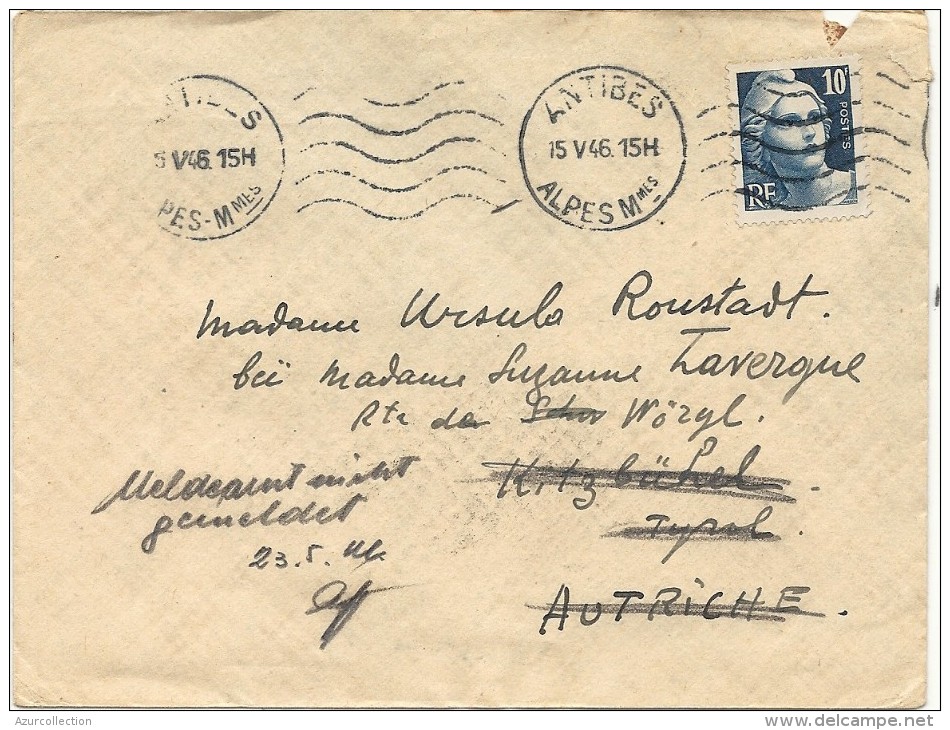 ANTIBES
5 V46. 15H
PES-MMES
ANTIBES
15 V46. 15H
ALPES MMES
10F
POSTES
RF
Madame Ursula Roustadt.
beï Madame Suzanne Lavergne
Rte de Wörgl.
Kitzbühel.
Tyrol.
AUTRICHE.
Meldeamt nicht
gemeldet
23. 5. 46
Azurcollection
www.delcampe.net